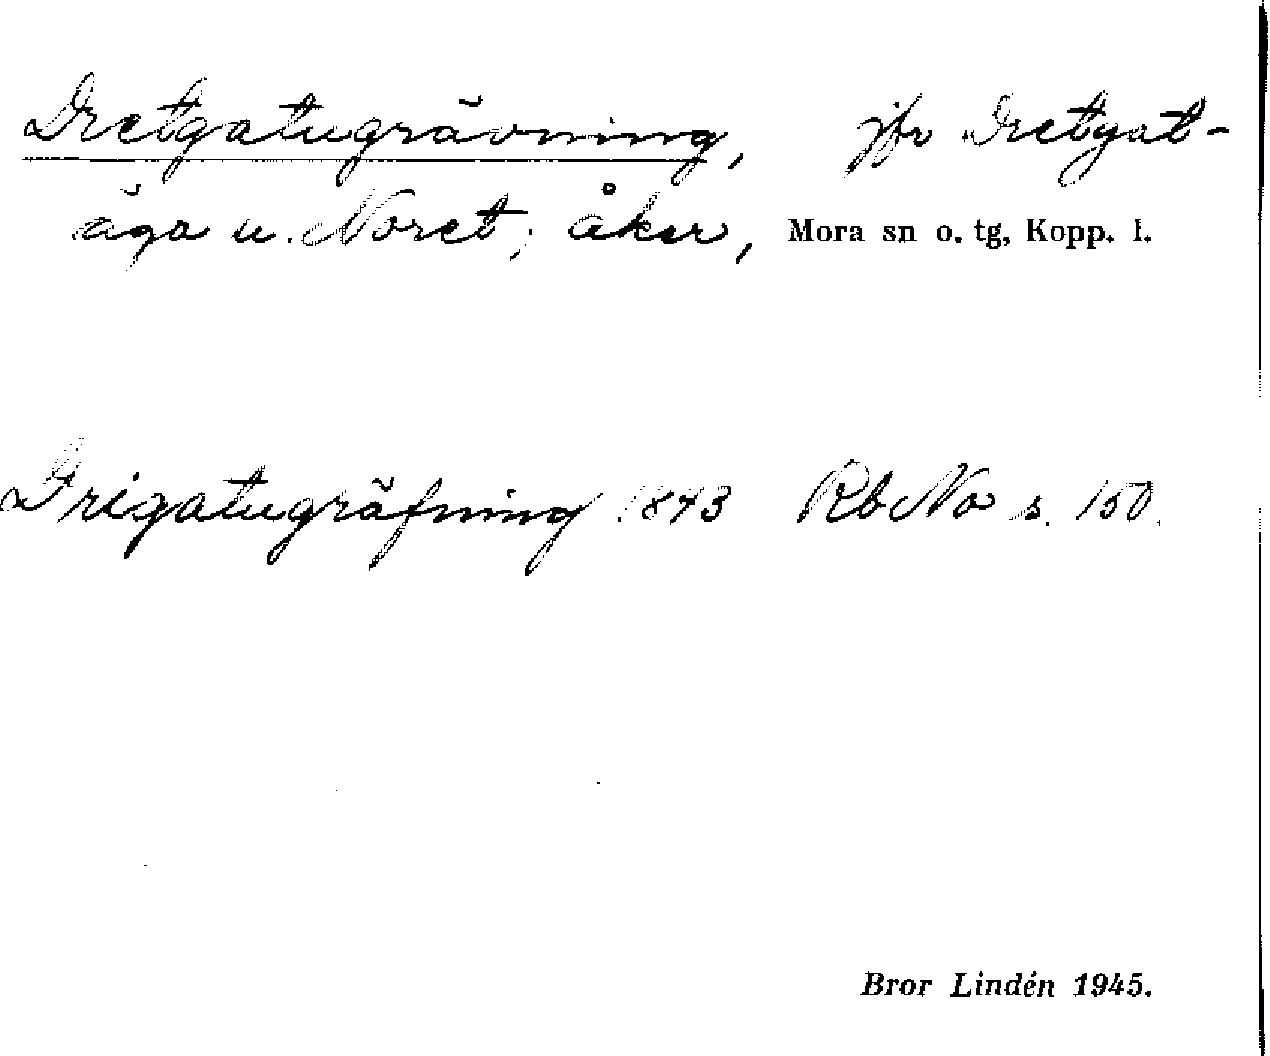 Dretgatugrävning, jfr Dretgat-
äga u. Noret; åker, Mora sn o. tg, Kopp. l.
Drigatugräfning 1843 RbNo s. 150.
Bror Lindén 1945.